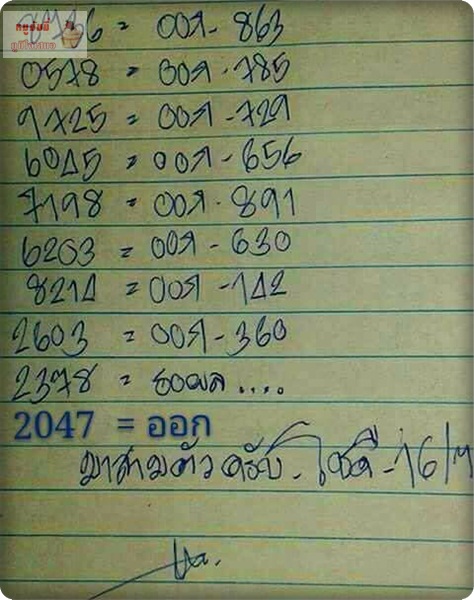 = ออก - 863
0578 = ออก - 785
9725 = ออก - 729
6045 = ออก - 656
7198 = ออก - 891
6203 = ออก - 630
8214 = ออก - 142
2603 = ออก - 360
2378 = รอผล ....
2047 = ออก
มาสามตัวครับ - โชคดี - 16/